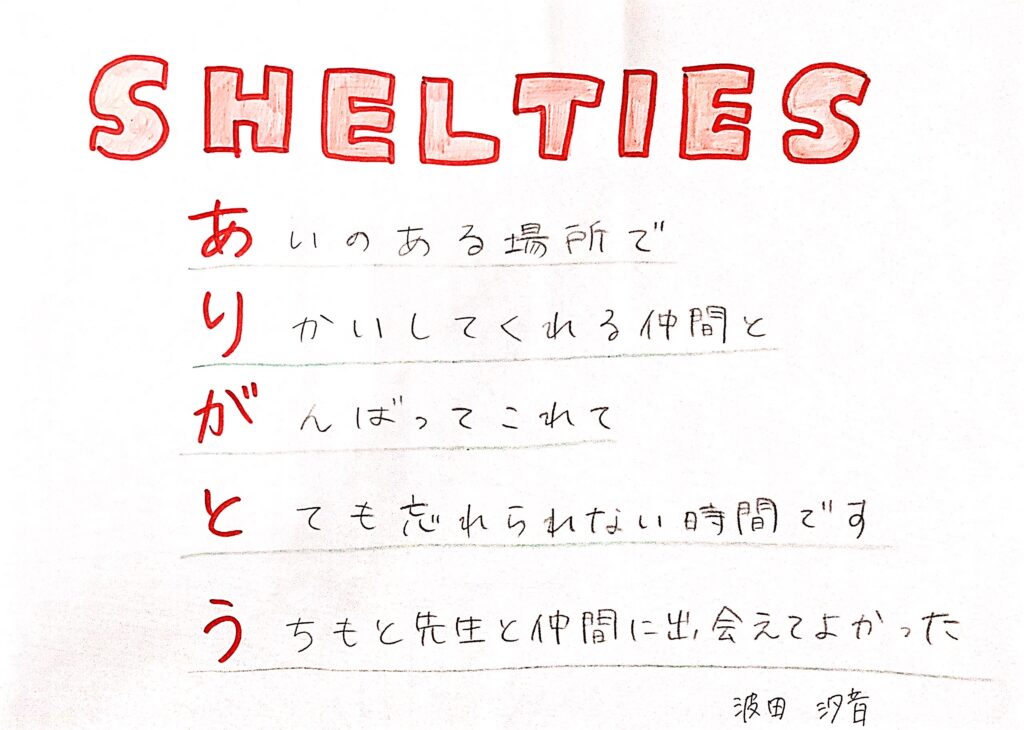 SHELTIES
あいのある場所で
りかいしてくれる仲間と
がんばってこれて
とても忘れられない時間です
うちもと先生と仲間に出会えてよかった
波田 汐音